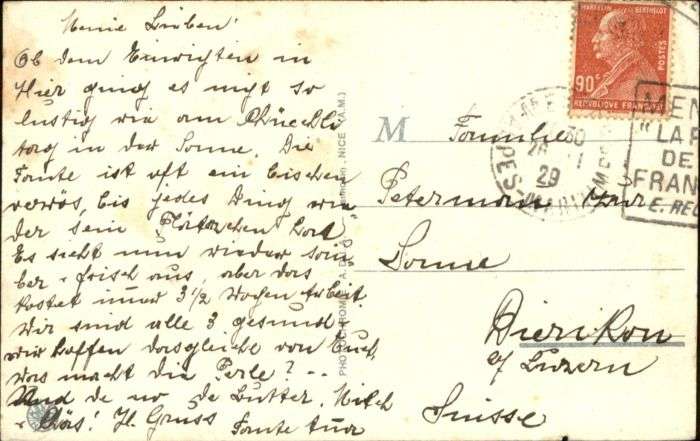 Meine Lieben!
Ob dem Einrichten in
Hier ging es nicht so
lustig wie am
tag in der Sonne. Die
Tante ist oft ein bischen
nervös, bis jedes Ding wie
der sein Plätzchen hat
Es sieht nun wieder sau
ber & frisch aus, aber das
kostet immer 3 1/2 Wochen Arbeit.
Wir sind alle 3 gesund &
wir hoffen dasgleiche von Euch,
was macht die Perle? --
Und de no de Butter, Milch
& Chäs! Hl. Gruss
Tante
M Familie
Petermann
Sonne
Dierikon
b/ Luzern
Suisse
MARCELIN BERTHELOT
POSTES
90c
REPUBLIQUE FRANÇAISE
28
29
MEN
"LA
DE
FRAN
NICE (A.M.)